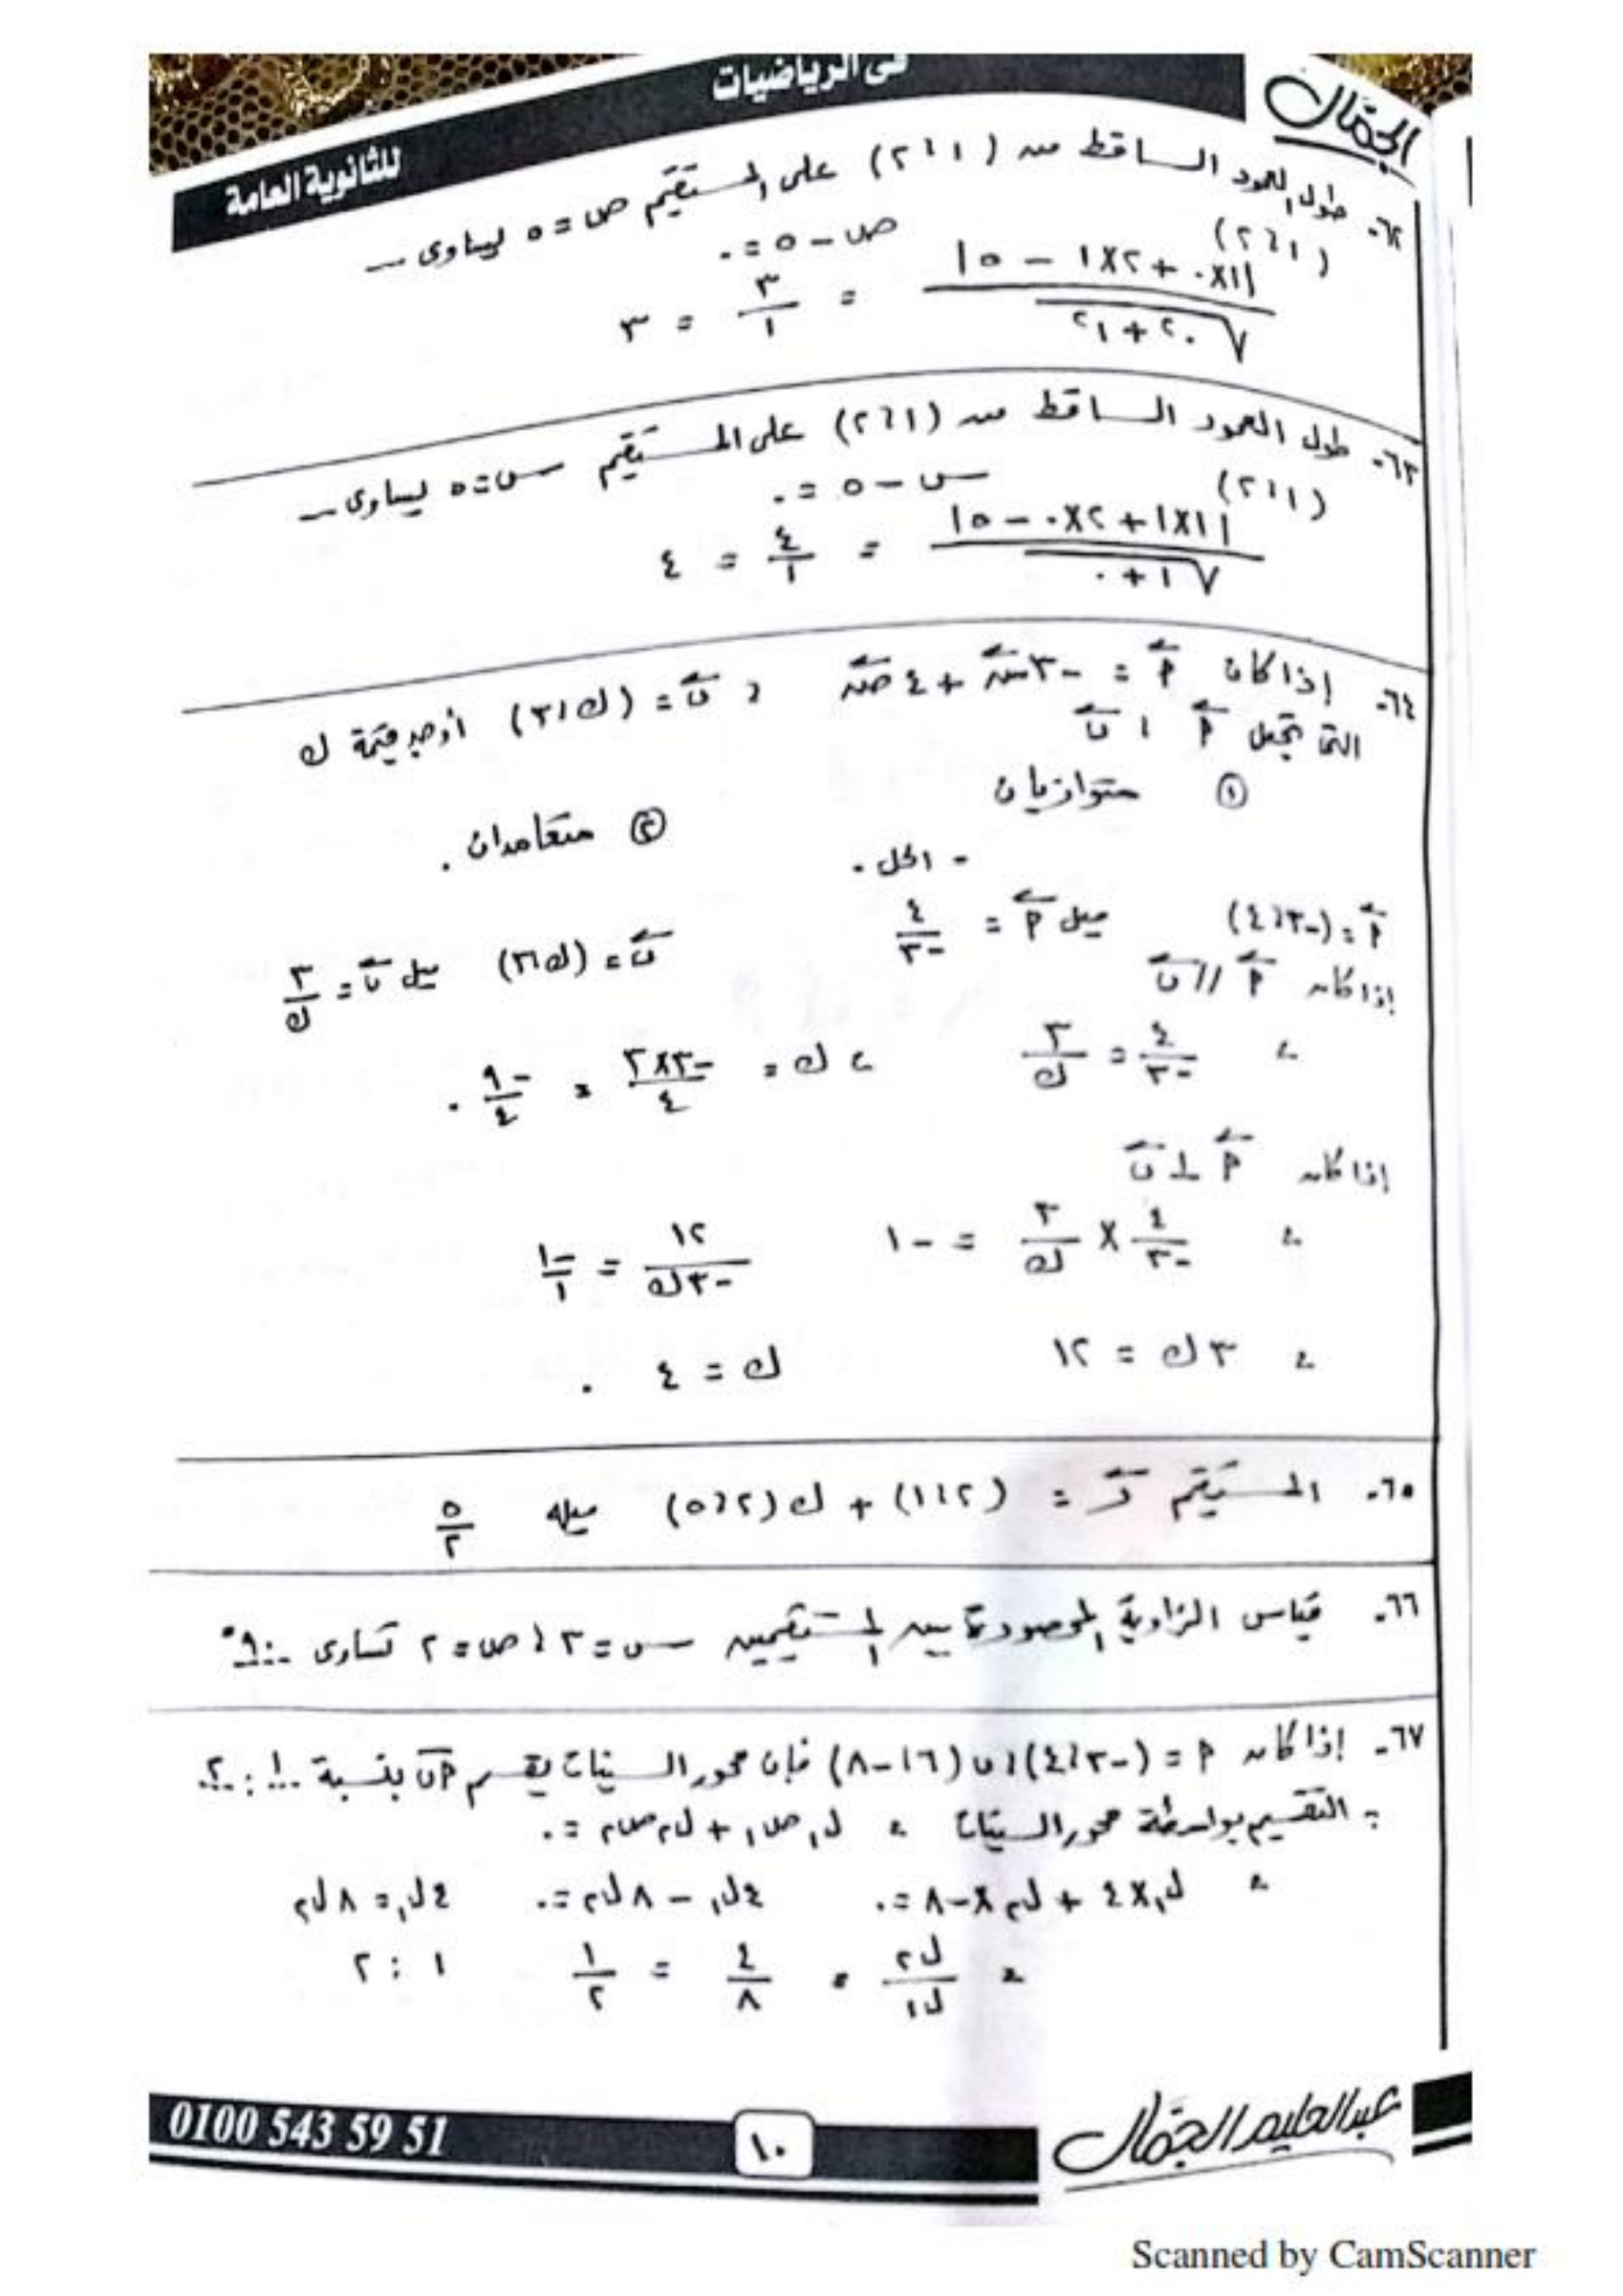 فى الرياضيات
الجمال
للثانوية العامة
٦٢- طول العمود الساقط من (١، ٢) على المستقيم ص = ٥ يساوى ---
(١، ٢) ص - ٥ = ٠
|١×٠ + ٢×١ - ٥| / √(٠² + ١²) = ٣/١ = ٣
٦٣- طول العمود الساقط من (١، ٢) على المستقيم س = ٥ يساوى ---
(١، ٢) س - ٥ = ٠
|١×١ + ٢×٠ - ٥| / √(١ + ٠) = ٤/١ = ٤
٦٤- إذا كان أ = -٣ س + ٤ ص ، ب = (ك، ٣) أوجد قيمة ك
التى تجعل أ ، ب
① متوازيان ② متعامدان .
- الحل -
أ = (-٣، ٤) ميل أ = ٤/-٣ ب = (ك، ٣) ميل ب = ٣/ك
إذا كان أ // ب
∴ ٤/-٣ = ٣/ك ∴ ك = -٣×٣/٤ = -٩/٤ .
إذا كان أ ⊥ ب
∴ ٤/-٣ × ٣/ك = -١ ١٢/-٣ك = -١/١
∴ ٣ ك = ١٢ ك = ٤ .
٦٥- المستقيم ر = (٢، ١) + ك (٢، ٥) ميله ٥/٢
٦٦- قياس الزاوية المحصورة بين المستقيمين س = ٣ ، ص = ٢ تساوى ٩٠°
٦٧- إذا كان أ = (-٣، ٤) ، ب (٦، -٨) فإن محور السينات يقسم أب بنسبة ١ : ٢
∵ التقسيم بواسطة محور السينات ∴ ل١ ص١ + ل٢ ص٢ = ٠
∴ ل١ × ٤ + ل٢ × -٨ = ٠ ٤ل١ - ٨ل٢ = ٠ ٤ل١ = ٨ل٢
∴ ل٢/ل١ = ٤/٨ = ١/٢ ١ : ٢
عبدالحليم الجمال
١٠
0100 543 59 51
Scanned by CamScanner